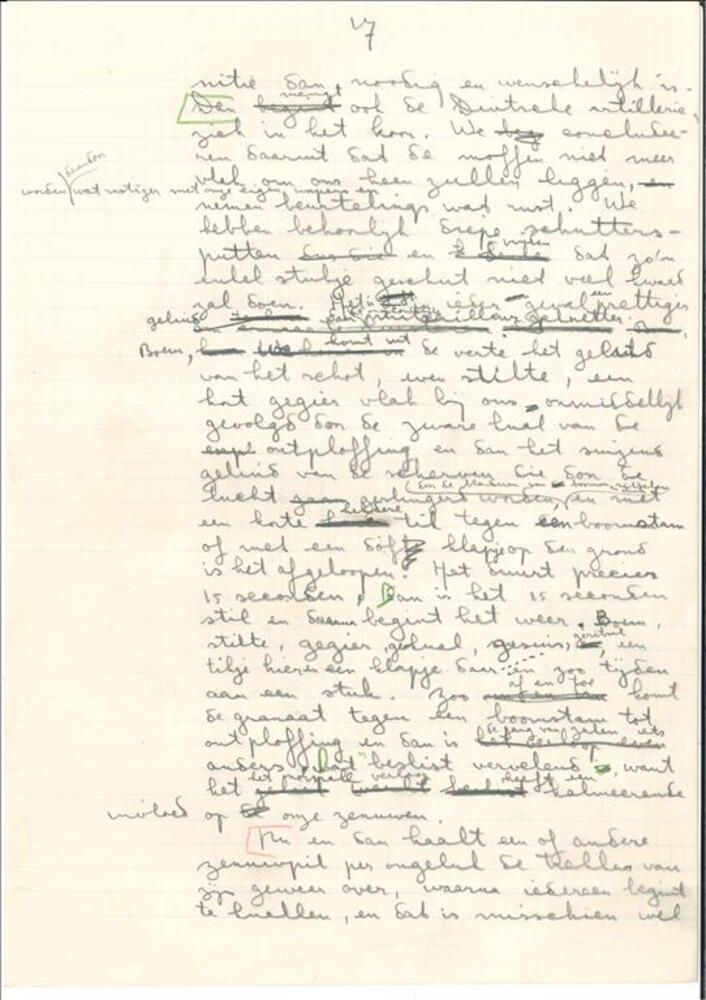 17
nitie dan noodig en wenschelijk is.
Dan mengt ook de Duitsche artillerie
zich in het koor. We concludee-
ren daaruit dat de moffen niet meer
vlak om ons heen zullen liggen,
worden daardoor wat rustiger met onze eigen wapens en
nemen beurtelings wat rust. We
hebben behoorlijk diepe schutters-
putten en dat zo'n
enkel stukje geschut niet veel kwaad
zal doen. Het is in ieder geval een prettiger
geluid
Boem, komt uit de verte het geluid
van het schot, even stilte, een
kort gegier vlak bij ons onmiddellijk
gevolgd door de zware knal van de
ontploffing en dan het suizend
geluid van de scherven die door de
lucht geslingerd worden, door de bladeren van boomen ritselen en met
een korte heldere tik tegen een boomstam
of met een dof klapje op den grond
is het afgeloopen. Het duurt precies
15 seconden, Dan is het 15 seconden
stil en daarna begint het weer. Boem,
stilte, gegier, geknal, gesuis, geritsel, een
tikje hier en een klapje daar en zoo tijden
aan een stuk. Zoo af en toe komt
de granaat tegen een boomstam tot
ontploffing en dan is de gang van zaken iets
anders, wat beslist vervelend is, want
het normale verloop heeft een kalmeerende
invloed op onze zenuwen.
Nu en dan haalt een of andere
zenuwpil per ongeluk de trekker van
zijn geweer over, waarna iedereen begint
te knallen, en dat is misschien wel